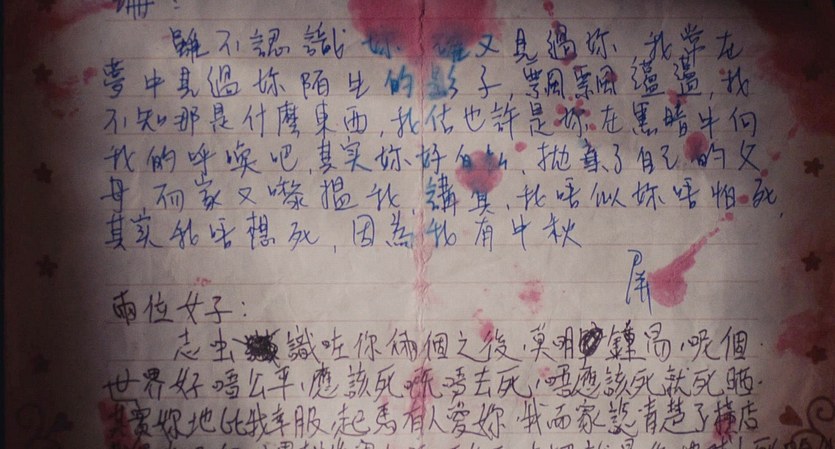 珊：
雖不認識妳 雖又見過妳 我常在
夢中見過妳陌生的影子，飄飄蕩蕩，我
不知那是什麼東西，我估也許是妳在黑暗中向
我的呼喚吧，其實妳好自私，拋棄了自己的父
母，而家又嚟搵我，講真，我唔似妳唔怕死，
其實我唔想死，因為我有中秋
屏
兩位女子：
志虫 識咗你倆個之後，莫明 鍾 ，呢個
世界好唔公平，應該死嘅唔去死，唔應該死就死晒
其實妳地比我幸服，起馬有人愛妳，我而家 清楚了 店